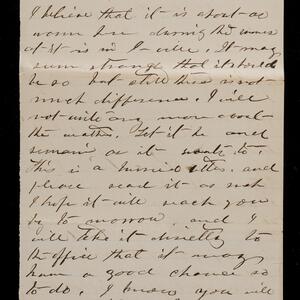 I believe that it is about as
warm here during the
as it is in I ville. It may
seem strange that it should
be so but still there is not
much difference. I will
not write any more about
the weather. Let it be and
remain as it wants to.
This is a hurried letter, and
please read it as such
I hope it will reach you
by to morrow, and I
will take it directly to
the office that it may
have a good chance so
to do. I know you will